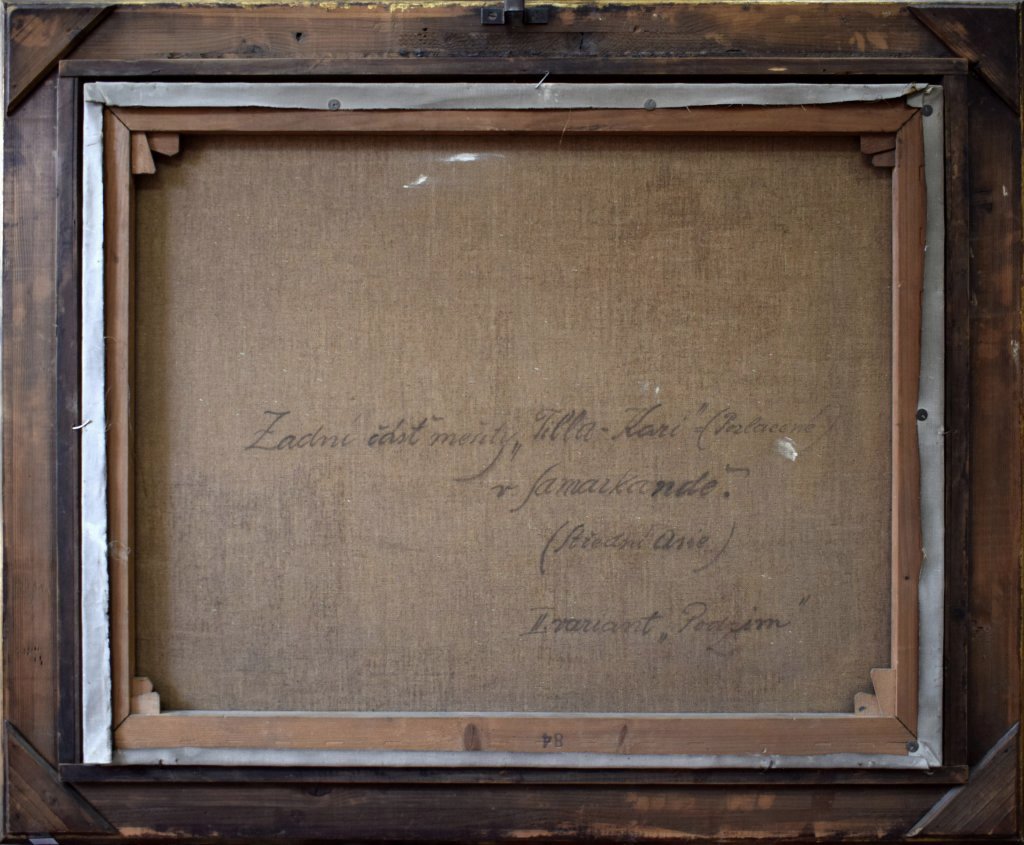 Zadní část mešity „Tilla-Kari" (Pozlacené)
v Samarkandě.
(Střední Asie)
II. variant „Podzim"
84